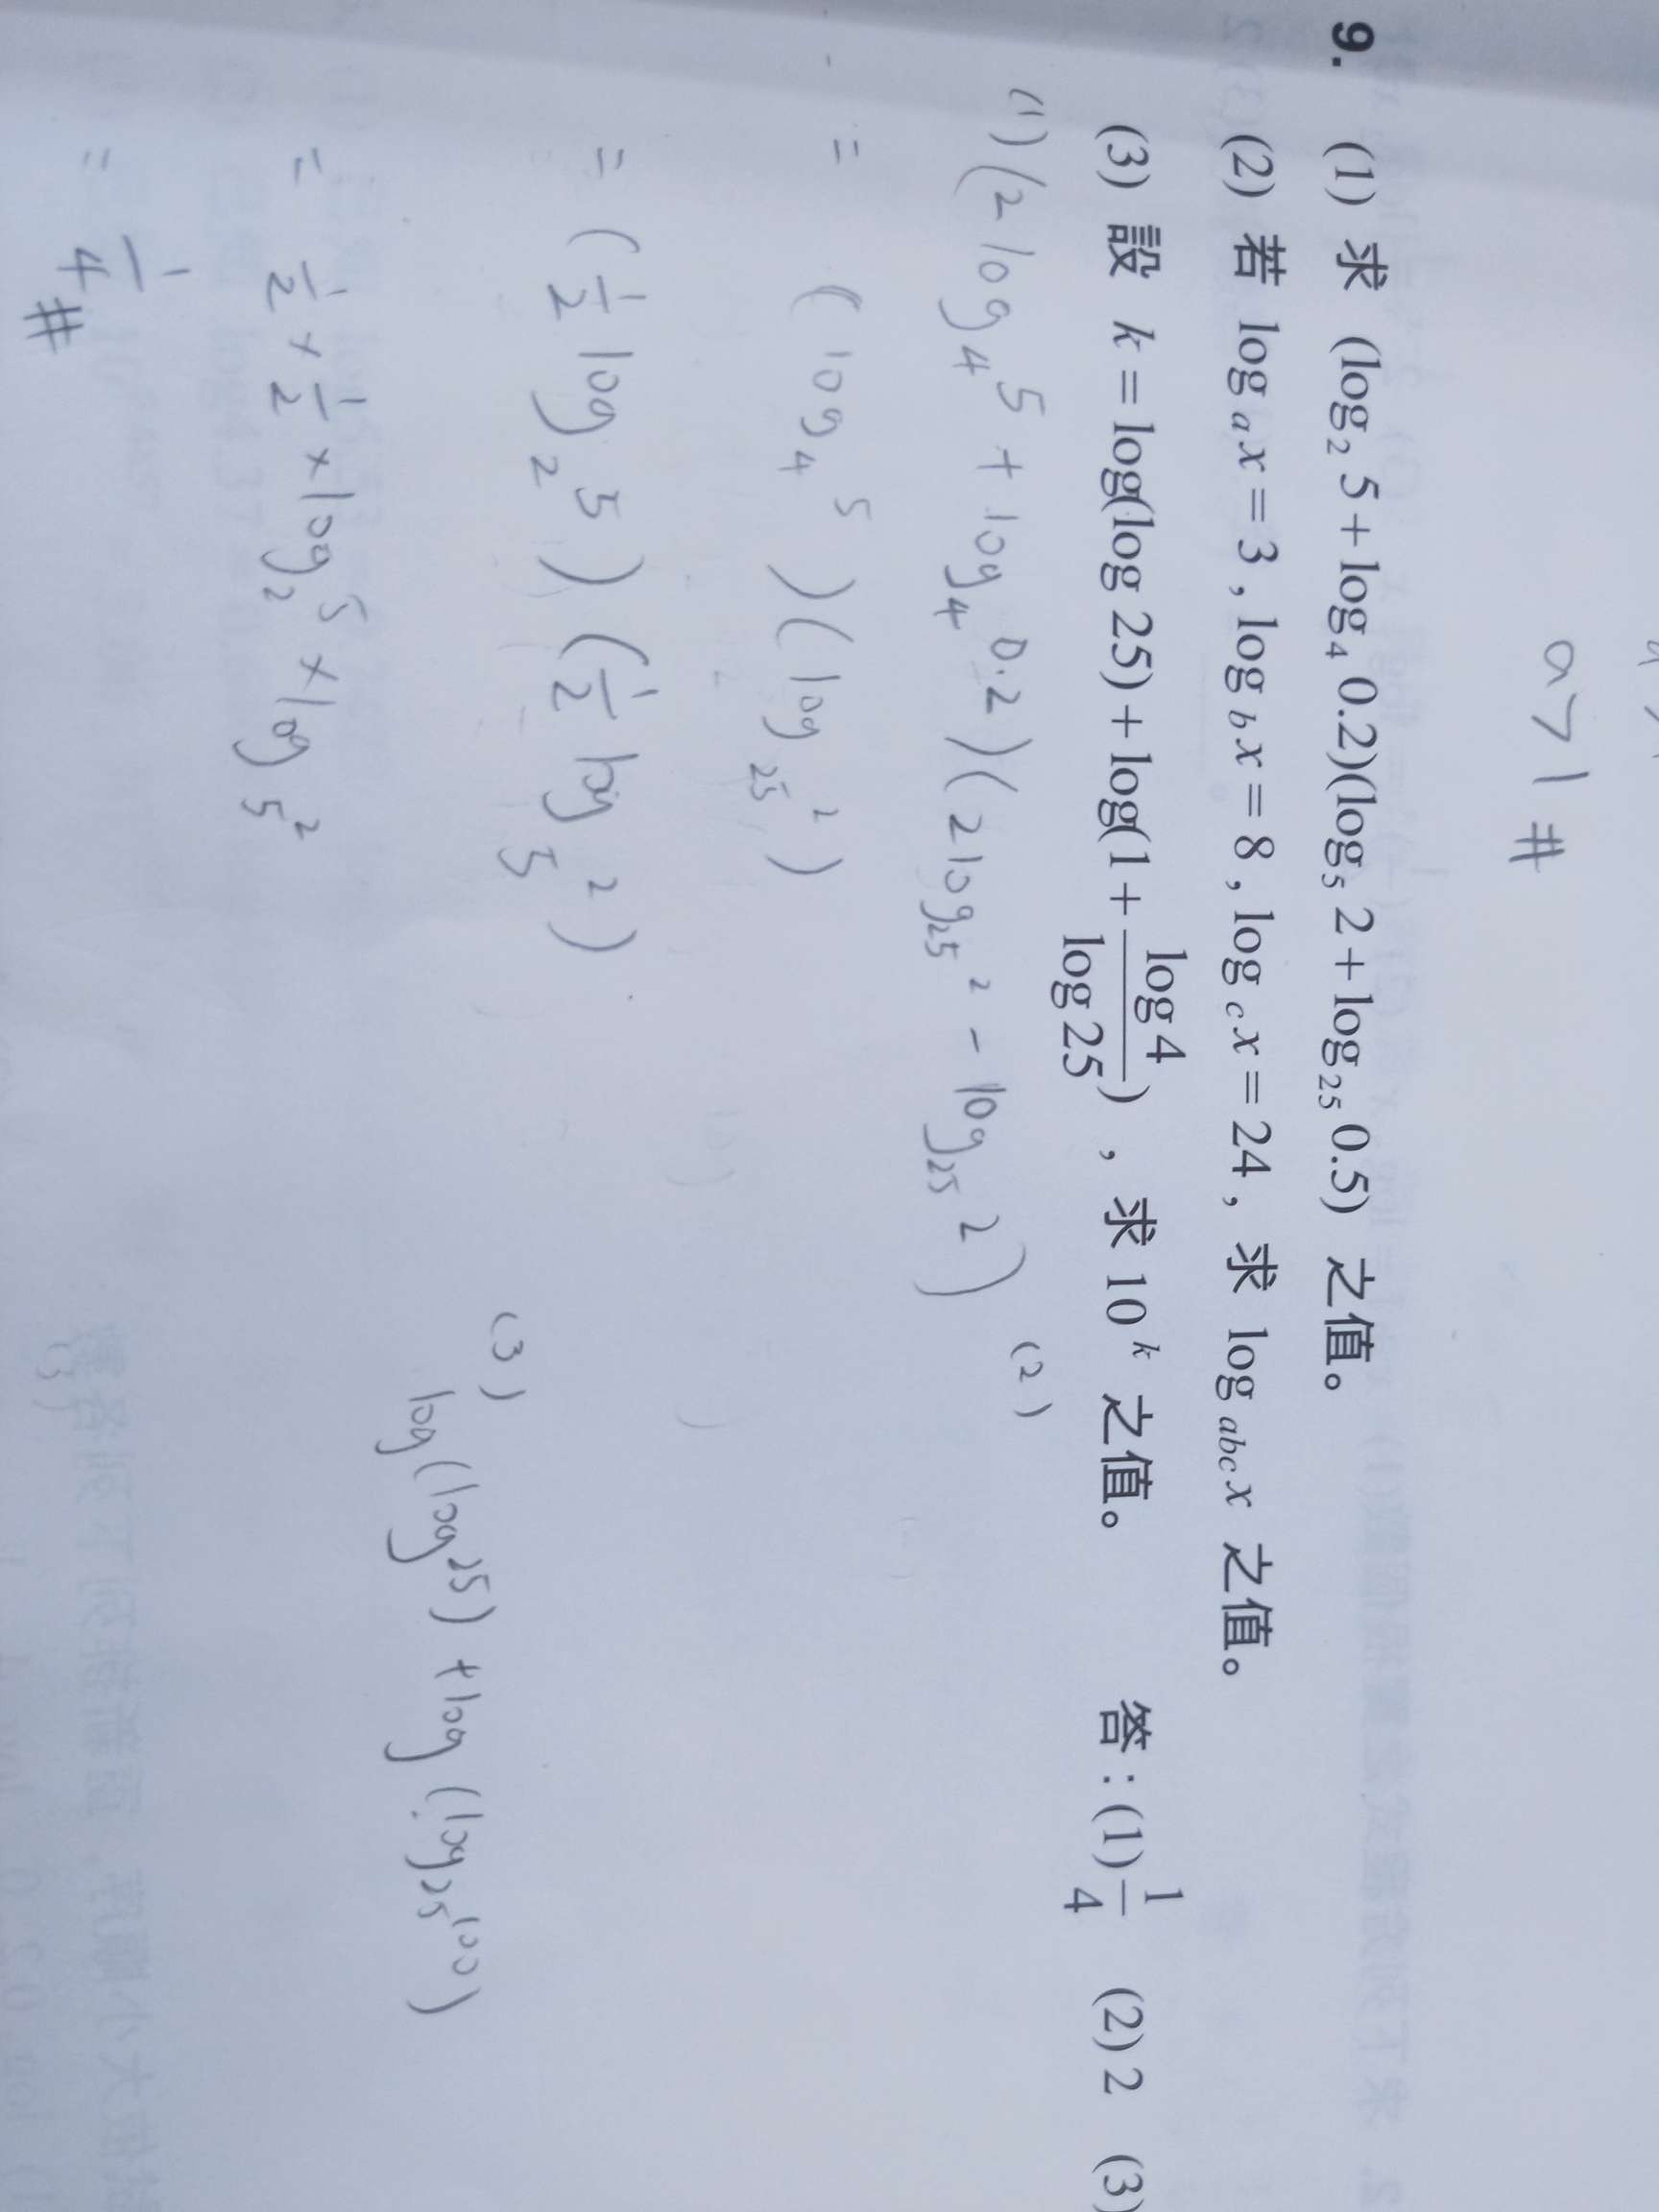 a>1 #
9. (1) 求 (log₂ 5 + log₄ 0.2)(log₅ 2 + log₂₅ 0.5) 之值。
(2) 若 log ₐ x = 3 , log _b x = 8 , log _c x = 24 , 求 log _abc x 之值。
(3) 設 k = log(log 25) + log(1 + log 4 / log 25) , 求 10^k 之值。 答 : (1) 1/4 (2) 2 (3)
(1) (2 log₄ 5 + log₄ 0.2)(2 log₂₅ 2 - log₂₅ 2)
= (log₄ 5)(log₂₅ 2)
= (1/2 log₂ 5)(1/2 log₅ 2)
= 1/2 × 1/2 × log₂ 5 × log₅ 2
= 1/4 #
(2)
(3)
log(log 25) + log(log₂₅ 100)